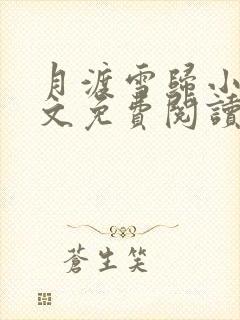 月渡雪歸小
文免費閱讀
蒼生笑